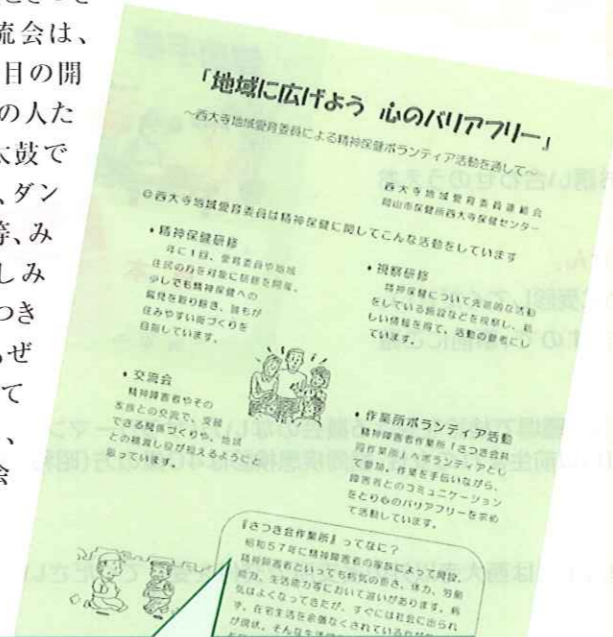 流会は、
目の開
の人た
太鼓で
、ダン
等、み
しみ
つき
ぜ
て
、
会
「地域に広げよう 心のバリアフリー」
~西大寺地域愛育委員による精神保健ボランティア活動を通して~
西大寺地域愛育委員連絡会
岡山市保健所西大寺保健センター
◎西大寺地域愛育委員は精神保健に関してこんな活動をしています
・精神保健研修
年に1回、愛育委員や地域
住民の方を対象に研修を開催。
少しでも精神保健への
偏見を取り除き、誰もが
住みやすい街づくりを
目指しています。
・視察研修
精神保健について先進的な活動
をしている施設などを視察し、新
しい情報を得て、活動の参考にし
ています。
・交流会
精神障害者やその
家族との交流で、支援
できる関係づくりや、地域
との橋渡し役が担えるようにと
願っています。
・作業所ボランティア活動
精神障害者作業所「さつき会共
同作業所」へボランティアとし
て参加。作業を手伝いながら、
障害者とのコミュニケーション
をとり心のバリアフリーを求め
て活動しています。
『さつき会作業所』ってなに?
昭和57年に精神障害者の家族によって開設。
精神障害者といっても病気の重さ、体力、労働
能力、生活能力等において違いがあります。病
気はよくなってきたが、すぐには社会に出られ
ず、在宅生活を余儀なくされている
が現状。そんな生活